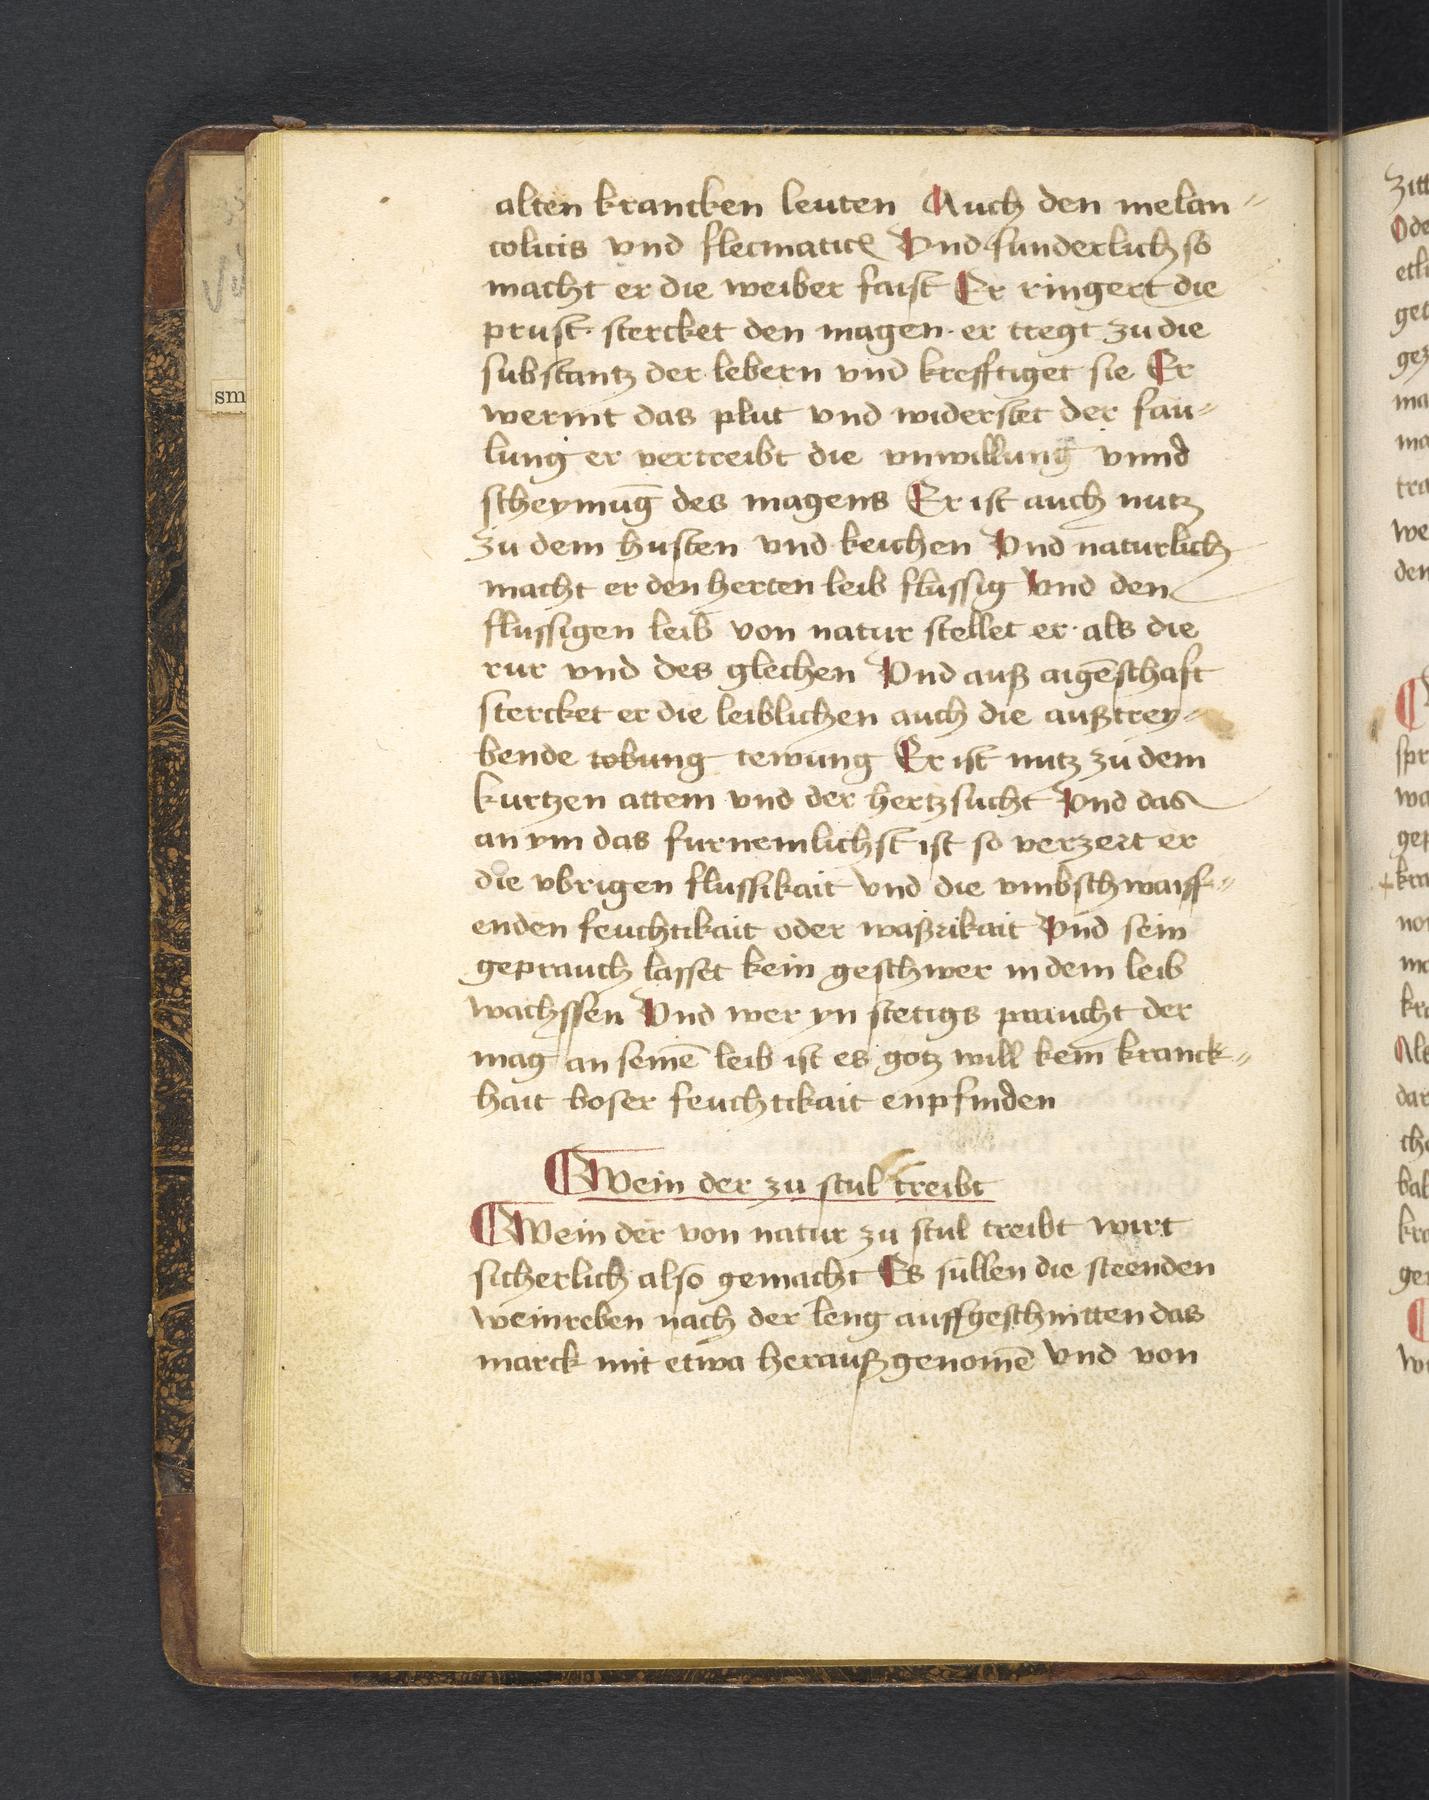 alten krancken leuten Auch den melan-
colicis vnd flecmaticꝭ Vnd sunderlich so
macht er die weiber faist Er ringert die
prust· stercket den magen· er tregt zu die
substantz der lebern vnd krefftiget sie Er
wermt das plut vnd widerstet der fau-
lung er vertreibt die vnwillung vnnd
scheymūg des magens Er ist auch nutz
zu dem husten vnd keichen Vnd naturlich
macht er den herten leib flussig Vnd den
flussigen leib von natur stellet er· als die
rur vnd des glechen Vnd auß aigēschaft
stercket er die leiblichen auch die außtrey-
bende tobung tewung Er ist nutz zu dem
kurtzen attem vnd der hertzsucht Vnd das
an ym das furnemlichst ist so verzert er
die vbrigen flussikait vnd die vmbschwaiff-
enden feuchtikait oder waßrikait Vnd sein
geprauch lasset kein geschwer in dem leib
wachssen Vnd wer yn stetigs praucht der
mag an seinē leib ist es gotz will kein kranck-
hait boser feuchtikait enpfinden
Wein der zu stul treibt
Wein der von natur zu stul treibt wirt
sicherlich also gemacht Es sullen die steenden
weinreben nach der leng auffgeschnitten das
marck mit etwa heraußgenomē vnd von
sm